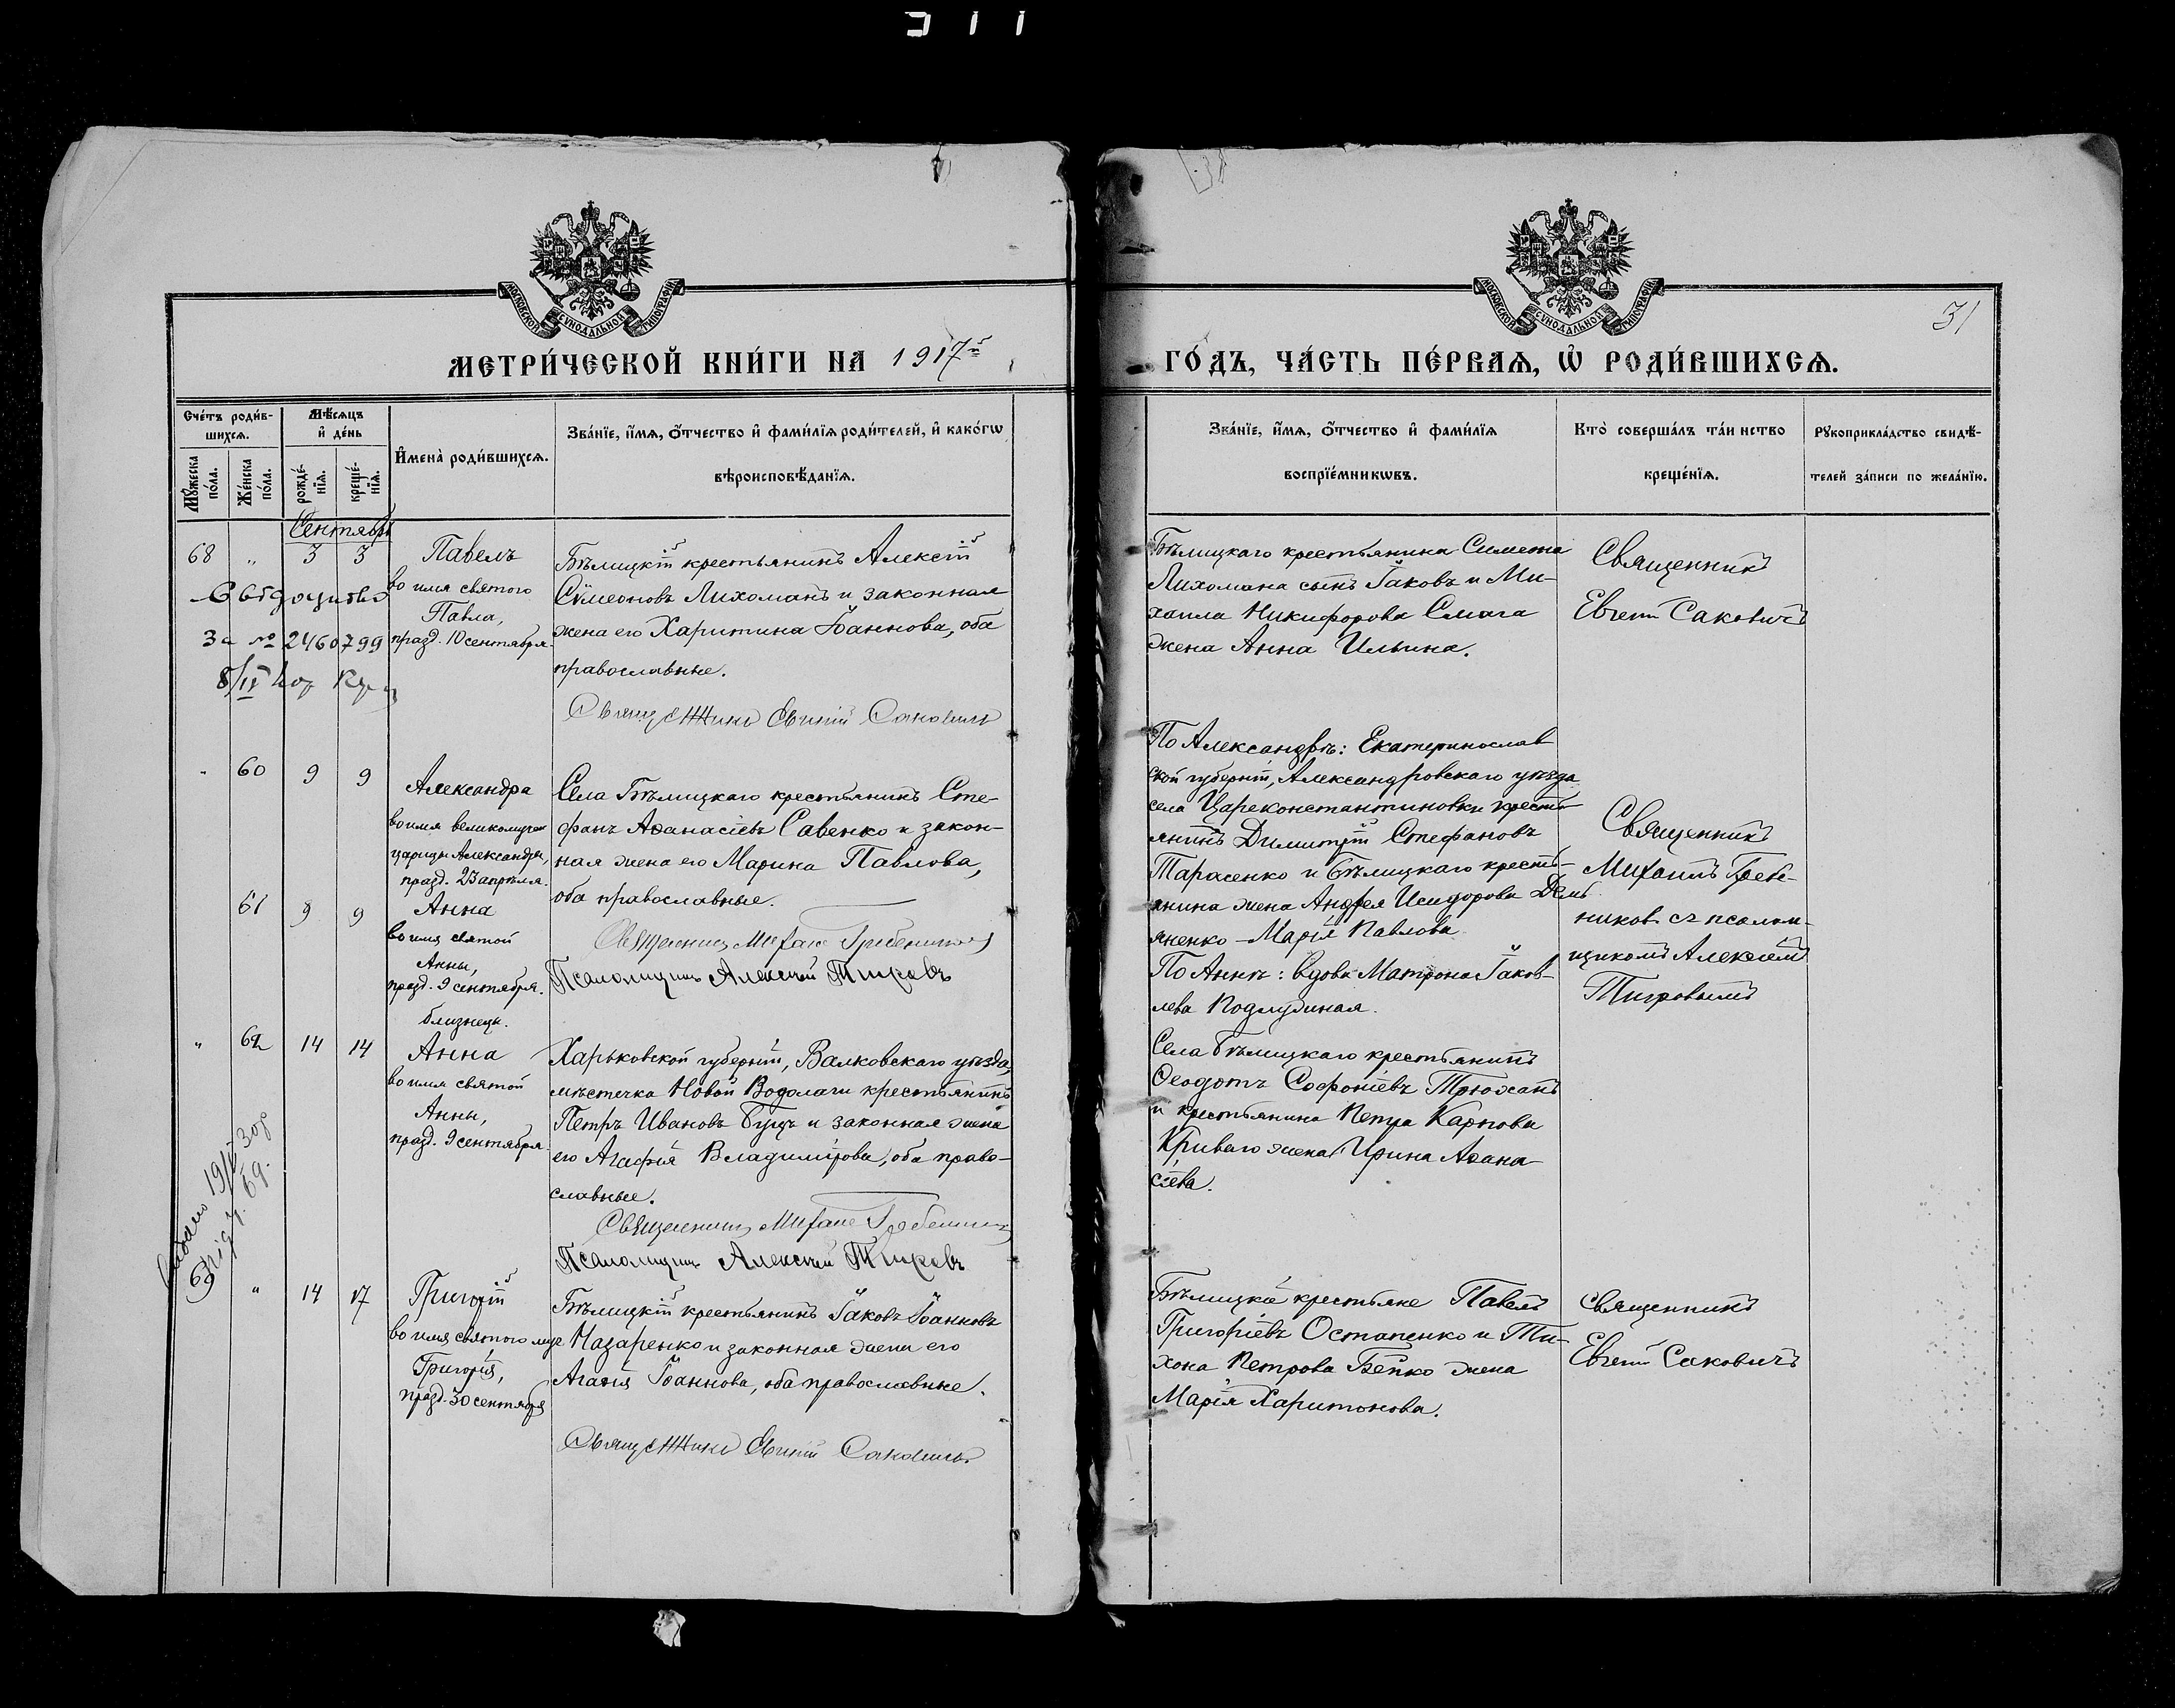 311
31
МОСКОВСКОЙ СУНОДАЛЬНОЙ ТИПОГРАФІИ
МОСКОВСКОЙ СУНОДАЛЬНОЙ ТИПОГРАФІИ
МЕТРИ́ЧЕСКОЙ КНИ́ГИ НА 1917й
ГО́ДЪ, ЧА́СТЬ ПЕ́РВАѦ, Ѡ҆ РОДИ́ВШИХСѦ.
Сче́тъ роди́в-
шихсѧ.
Мѣ́сѧцъ
и҆ де́нь
Мꙋ́жеска
по́ла.
Же́нска
по́ла.
рожде́-
нїѧ.
креще́-
нїѧ.
И҆мена̀ роди́вшихсѧ.
Зва́нїе, и҆́мѧ, ѻ҆́тчество и҆ фами́лїѧ роди́телей, и҆ како́гѡ
вѣроисповѣ́данїѧ.
Зва́нїе, и҆́мѧ, ѻ҆́тчество и҆ фами́лїѧ
воспрїе́мникѡвъ.
Кто̀ соверша́лъ та́инство
креще́нїѧ.
Рꙋкоприкла́дство свидѣ́-
телей за́писи по жела́нїю.
Сентябрь
68 „ 3 3
Павелъ
во имя святого
Павла,
празд. 10 сентября.
за № 2460799
Бѣлицкій крестьянинъ Алексій
Сѵмеоновъ Лихоманъ и законная
жена его Харитина Іоаннова, оба
православные.
Священникъ Евгеній Саковичъ
Бѣлицкаго крестьянина Симеона
Лихомана сынъ Іаковъ и Ми-
хаила Никифорова Смага
жена Анна Ильина.
Священникъ
Евгеній Саковичъ
„ 60 9 9
Александра
во имя великомучен
царицы Александры,
празд. 23 апрѣля.
61 9 9
Анна
во имя святой
Анны,
празд. 9 сентября.
близнецы.
Села Бѣлицкаго крестьянинъ Сте-
фанъ Аѳанасіевъ Савенко и закон-
ная жена его Марина Павлова,
оба православные.
Священникъ Михаилъ Гребениковъ
Псаломщикъ Алексѣй Тигровъ
По Александрѣ: Екатеринослав
ской губерніи, Александровскаго уѣзда
села Цареконстантиновки кресть
янинъ Димитрій Стефановъ
Тарасенко и Бѣлицкаго кресть-
янина жена Андрея Исидорова Демь
яненко - Марія Павлова
По Аннѣ: вдова Матрона Іаков-
лева
Священникъ
Михаилъ Гребе-
никовъ съ псалом-
щикомъ Алексіемъ
Тигровымъ
„ 62 14 14
Анна
во имя святой
Анны,
празд. 9 сентября
Харьковской губерніи, Валковскаго уѣзда,
мѣстечка Новой Водолаги крестьянинъ
Петръ Ивановъ Буцъ и законная жена
его Агафія Владимірова, оба право-
славные.
Священникъ Михаилъ Гребениковъ
Псаломщикъ Алексѣй Тигровъ
Села Бѣлицкаго крестьянинъ
Ѳеодотъ Софоніевъ Трюханъ
и крестьянина Петра Карпова
Криваго жена Ирина Аѳана-
сіева.
69 „ 14 17
Григорій
во имя святого
Григорія,
празд. 30 сентября
Бѣлицкій крестьянинъ Іаковъ Іоанновъ
Назаренко и законная жена его
Агаѳія Іоаннова, оба православные.
Священникъ Евгеній Саковичъ
Бѣлицкіе крестьяне Павелъ
Григоріевъ Остапенко и Ти-
хона Петрова Бейко жена
Марія Харитонова.
Священникъ
Евгеній Саковичъ